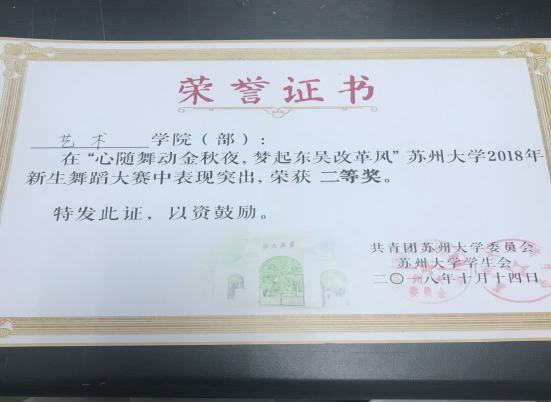 荣誉证书
艺术 学院（部）：
在“心随舞动金秋夜，梦起东吴改革风”苏州大学2018年
新生舞蹈大赛中表现突出，荣获 二等奖。
特发此证，以资鼓励。
共青团苏州大学委员会
苏州大学学生会
二〇一八年十月十四日